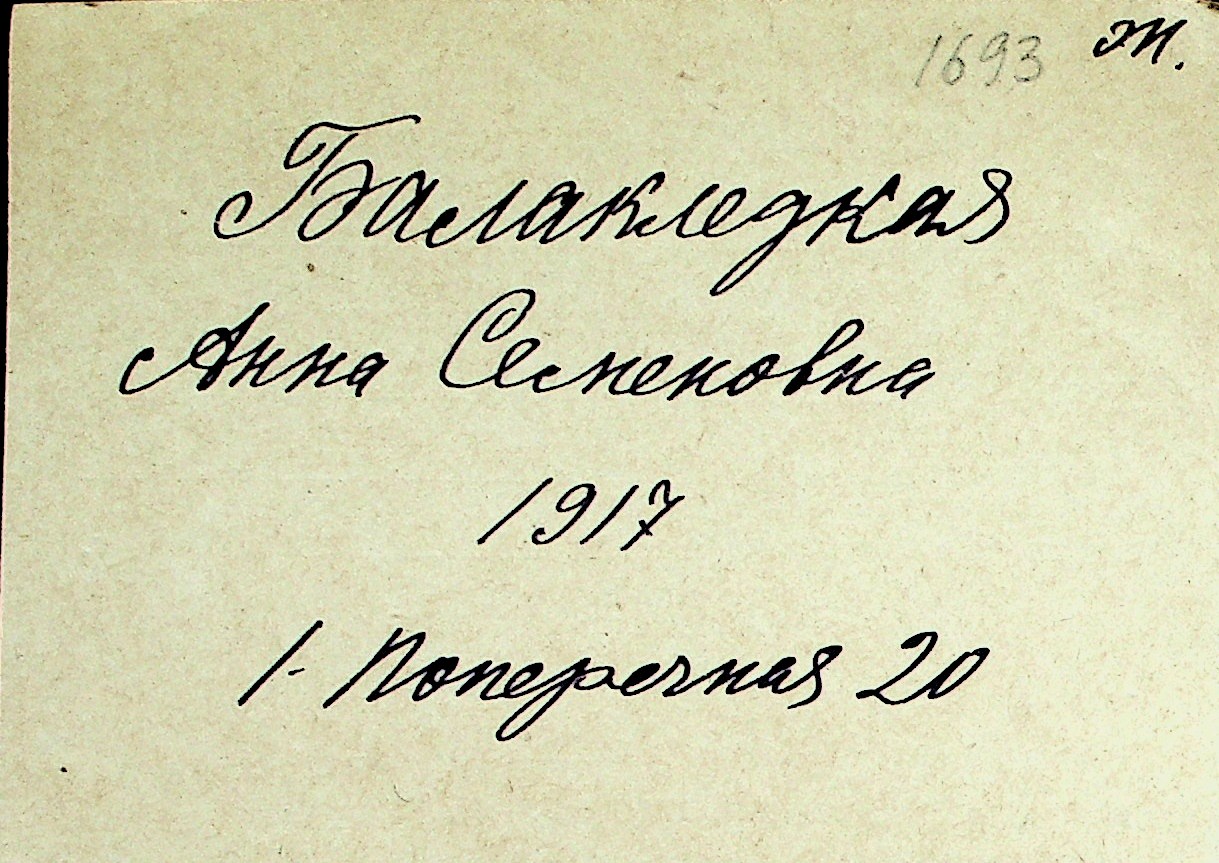 1693 ж.
Балаклецкая
Анна Семеновна
1917
1-Поперечная 20